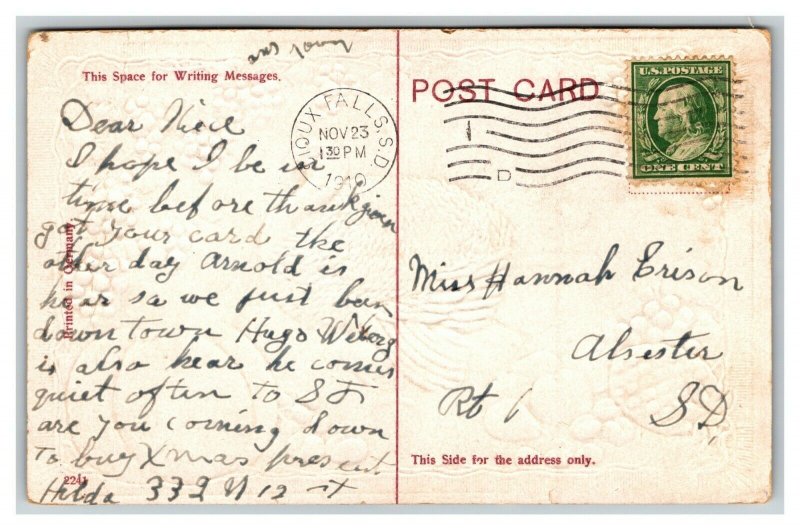 ans soon
This Space for Writing Messages.
Dear
I hope I be in
time before thanksgiven
got your card the
other day Arnold is
hear so we just been
down town Hugo Weberg
is also hear he comes
quiet often to S F
are you coming down
to buy Xmas present
Hilda 332 N 12 St
Printed in Germany
2241
POST CARD
SIOUX FALLS, S.D.
NOV 23
1 30 PM
1910
D
U.S. POSTAGE
ONE CENT
Miss Hannah Erison
Alsester
Rt 1 S D,
This Side for the address only.